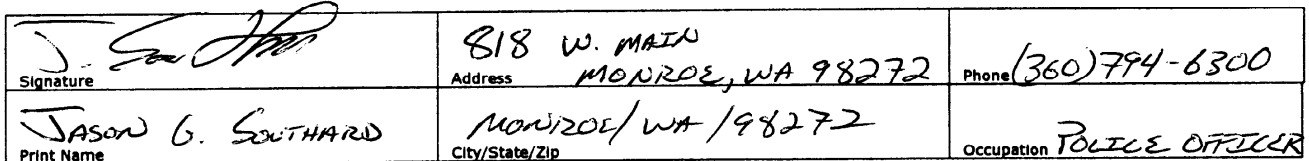 J. Southard
Signature
818 W. MAIN
Address MONROE, WA 98272
Phone (360) 794-6300
JASON G. SOUTHARD
Print Name
MONROE/WA/98272
City/State/Zip
Occupation POLICE OFFICER